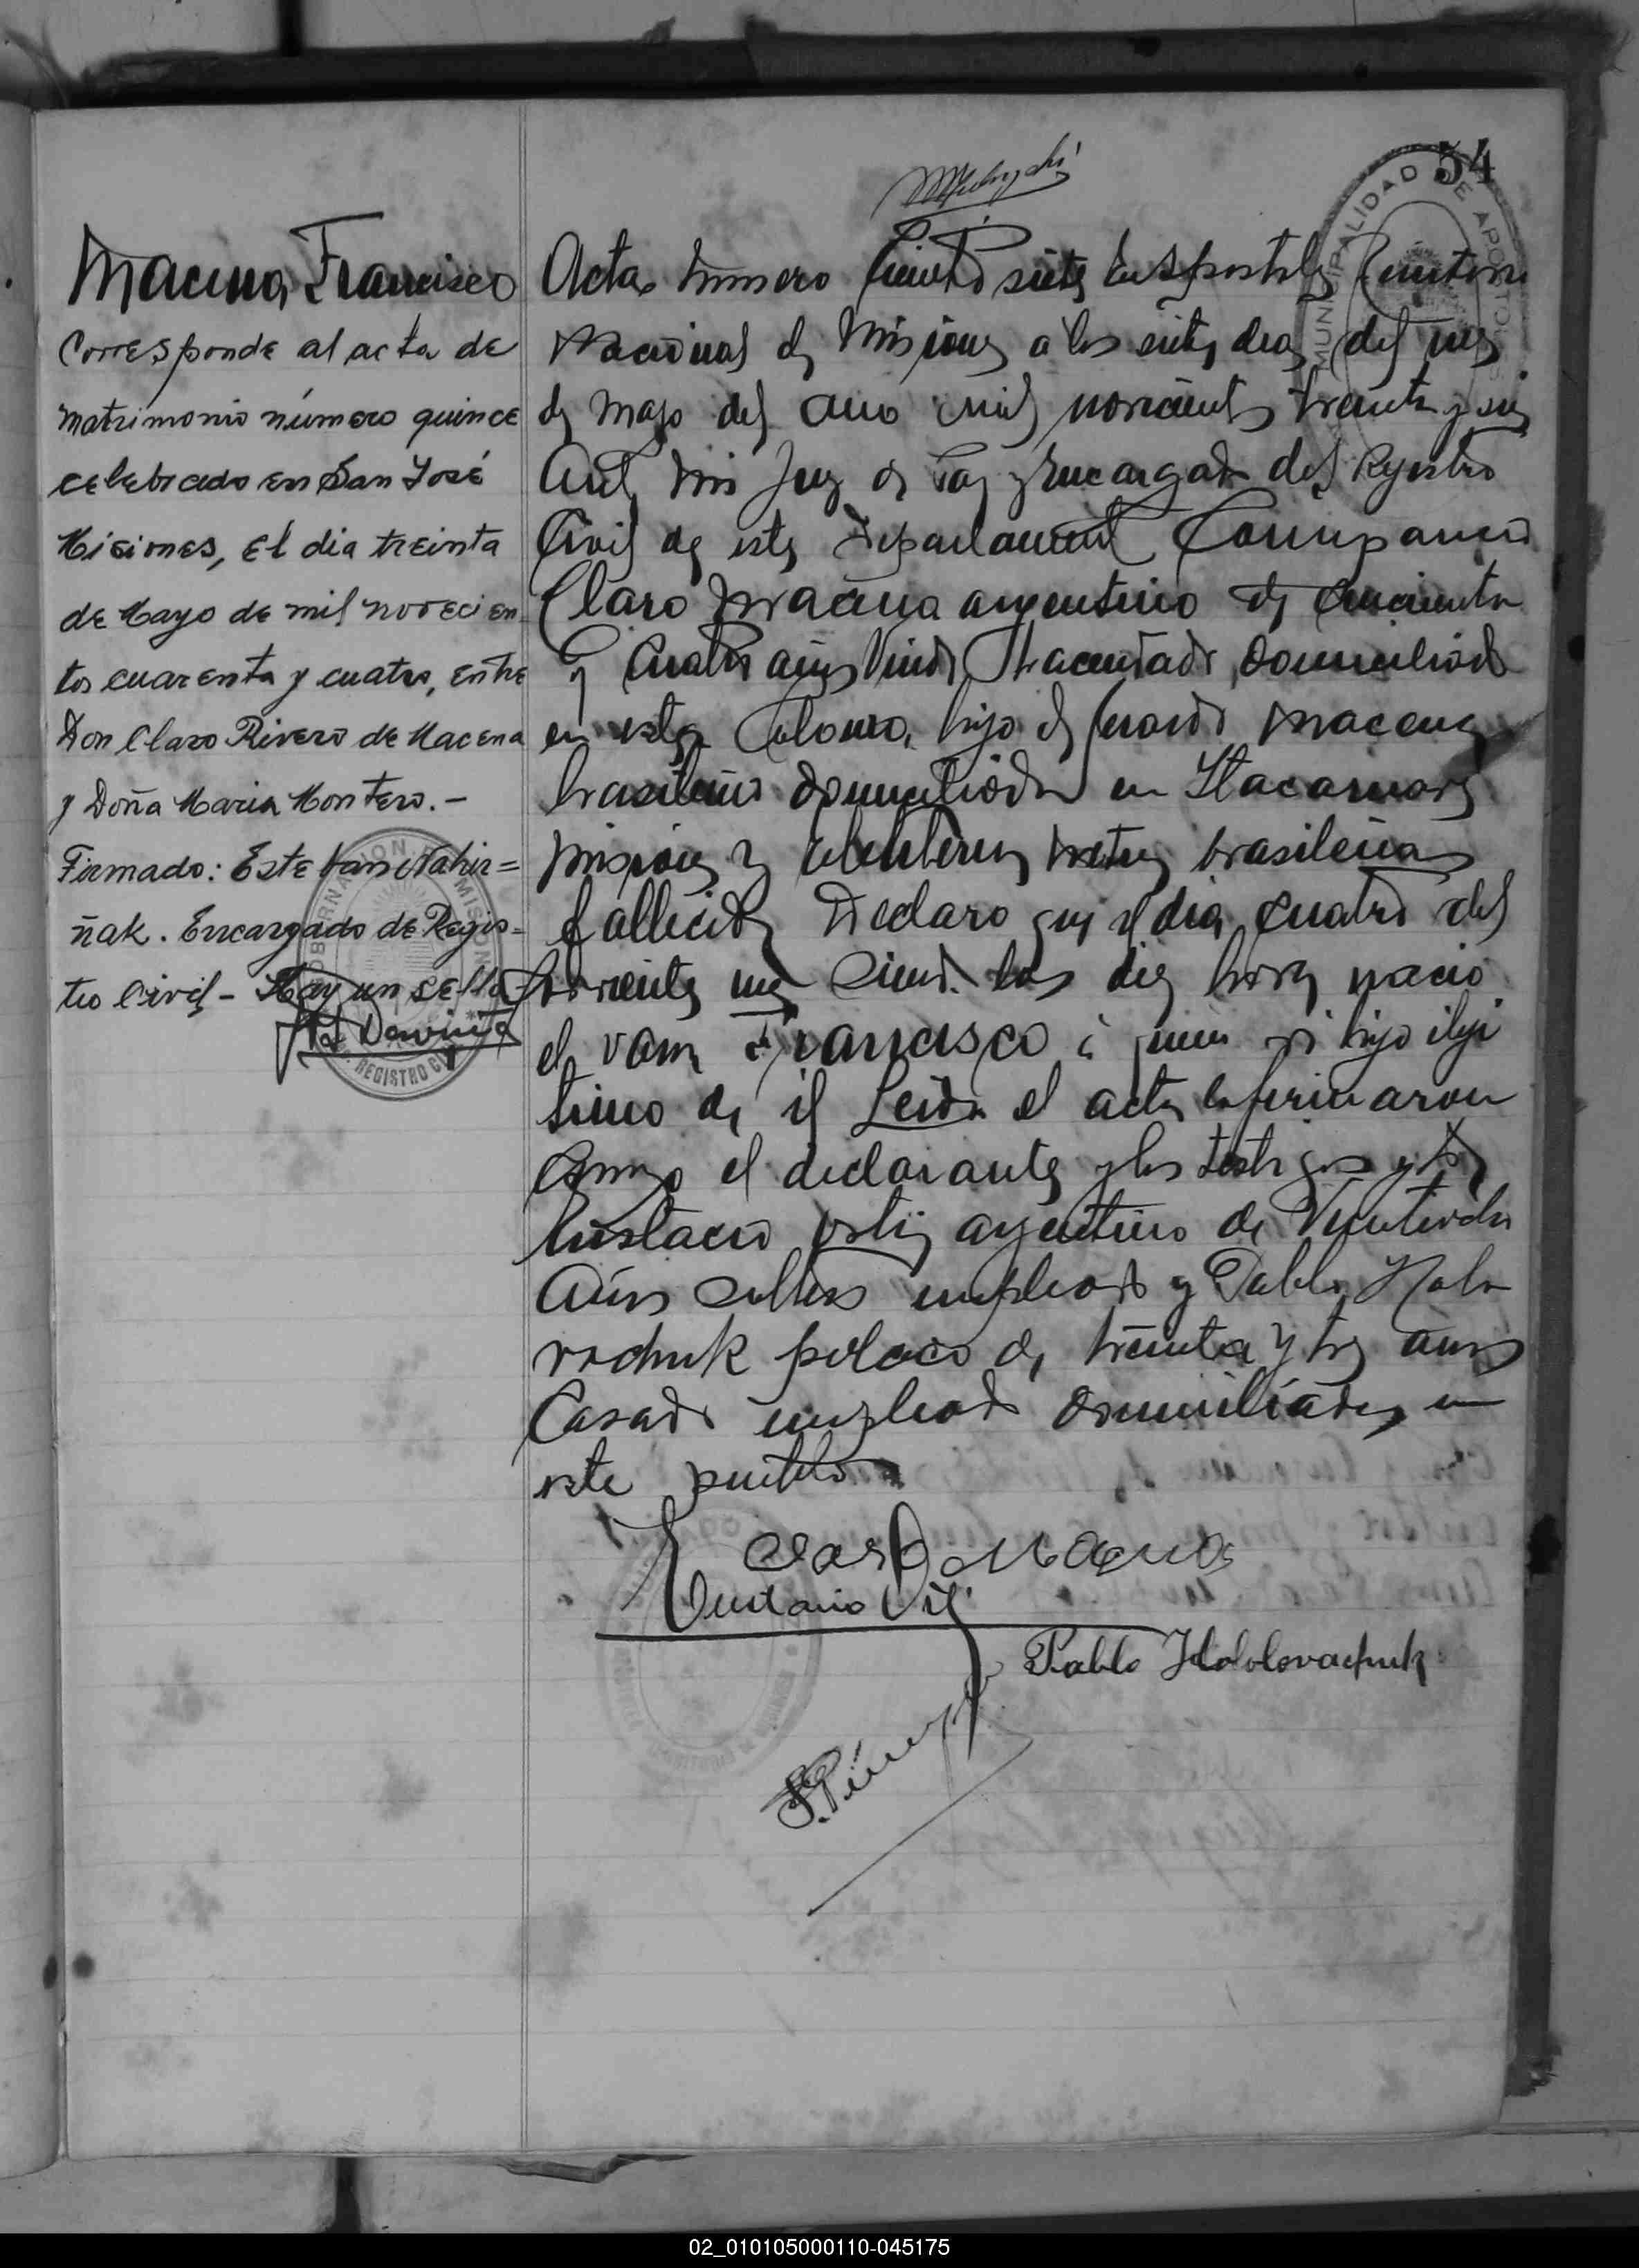 54
MUNICIPALIDAD DE APOSTOLES
Macena, Francisco
Corresponde al acta de
matrimonio número quince
celebrado en San José
Misiones, el dia treinta
de Mayo de mil novecien-
tos cuarenta y cuatro, entre
Don Claro Rivero de Macena
y Doña Maria Montero.-
Firmado: Esteban Nahir=
ñak. Encargado de Regis=
tro Civil - Hay un sello
REGISTRO
Acta número Ciento siete En Apostoles
Nacional de Misiones a los siete dias del mes
de Mayo del año mil novecientos treinta y seis
Ante mi Juez de Paz y Encargado del Registro
Civil de este Departamento Comparecio
Claro Macena argentino de cincuenta
y Cuatro años Viudo hacendado, domiciliado
en esta Colonia, hijo de Macena
brasileño domiciliado en Itacaruaré
Misiones y brasileña
fallecida Declaro que el dia cuatro del
corriente mes siendo las diez horas nacio
el varon Francisco a quien es hijo ilegi
timo de él Leida el acta la firmaron
conmigo el declarante y los testigos
Eustacio argentino de Veintidos
años soltero empleado y Pablo Holo
vachuk polaco de treinta y tres años
Casado empleado domiciliados en
este pueblo
Claro Macena
Eustacio
Pablo Hololovachuk
02_010105000110-045175